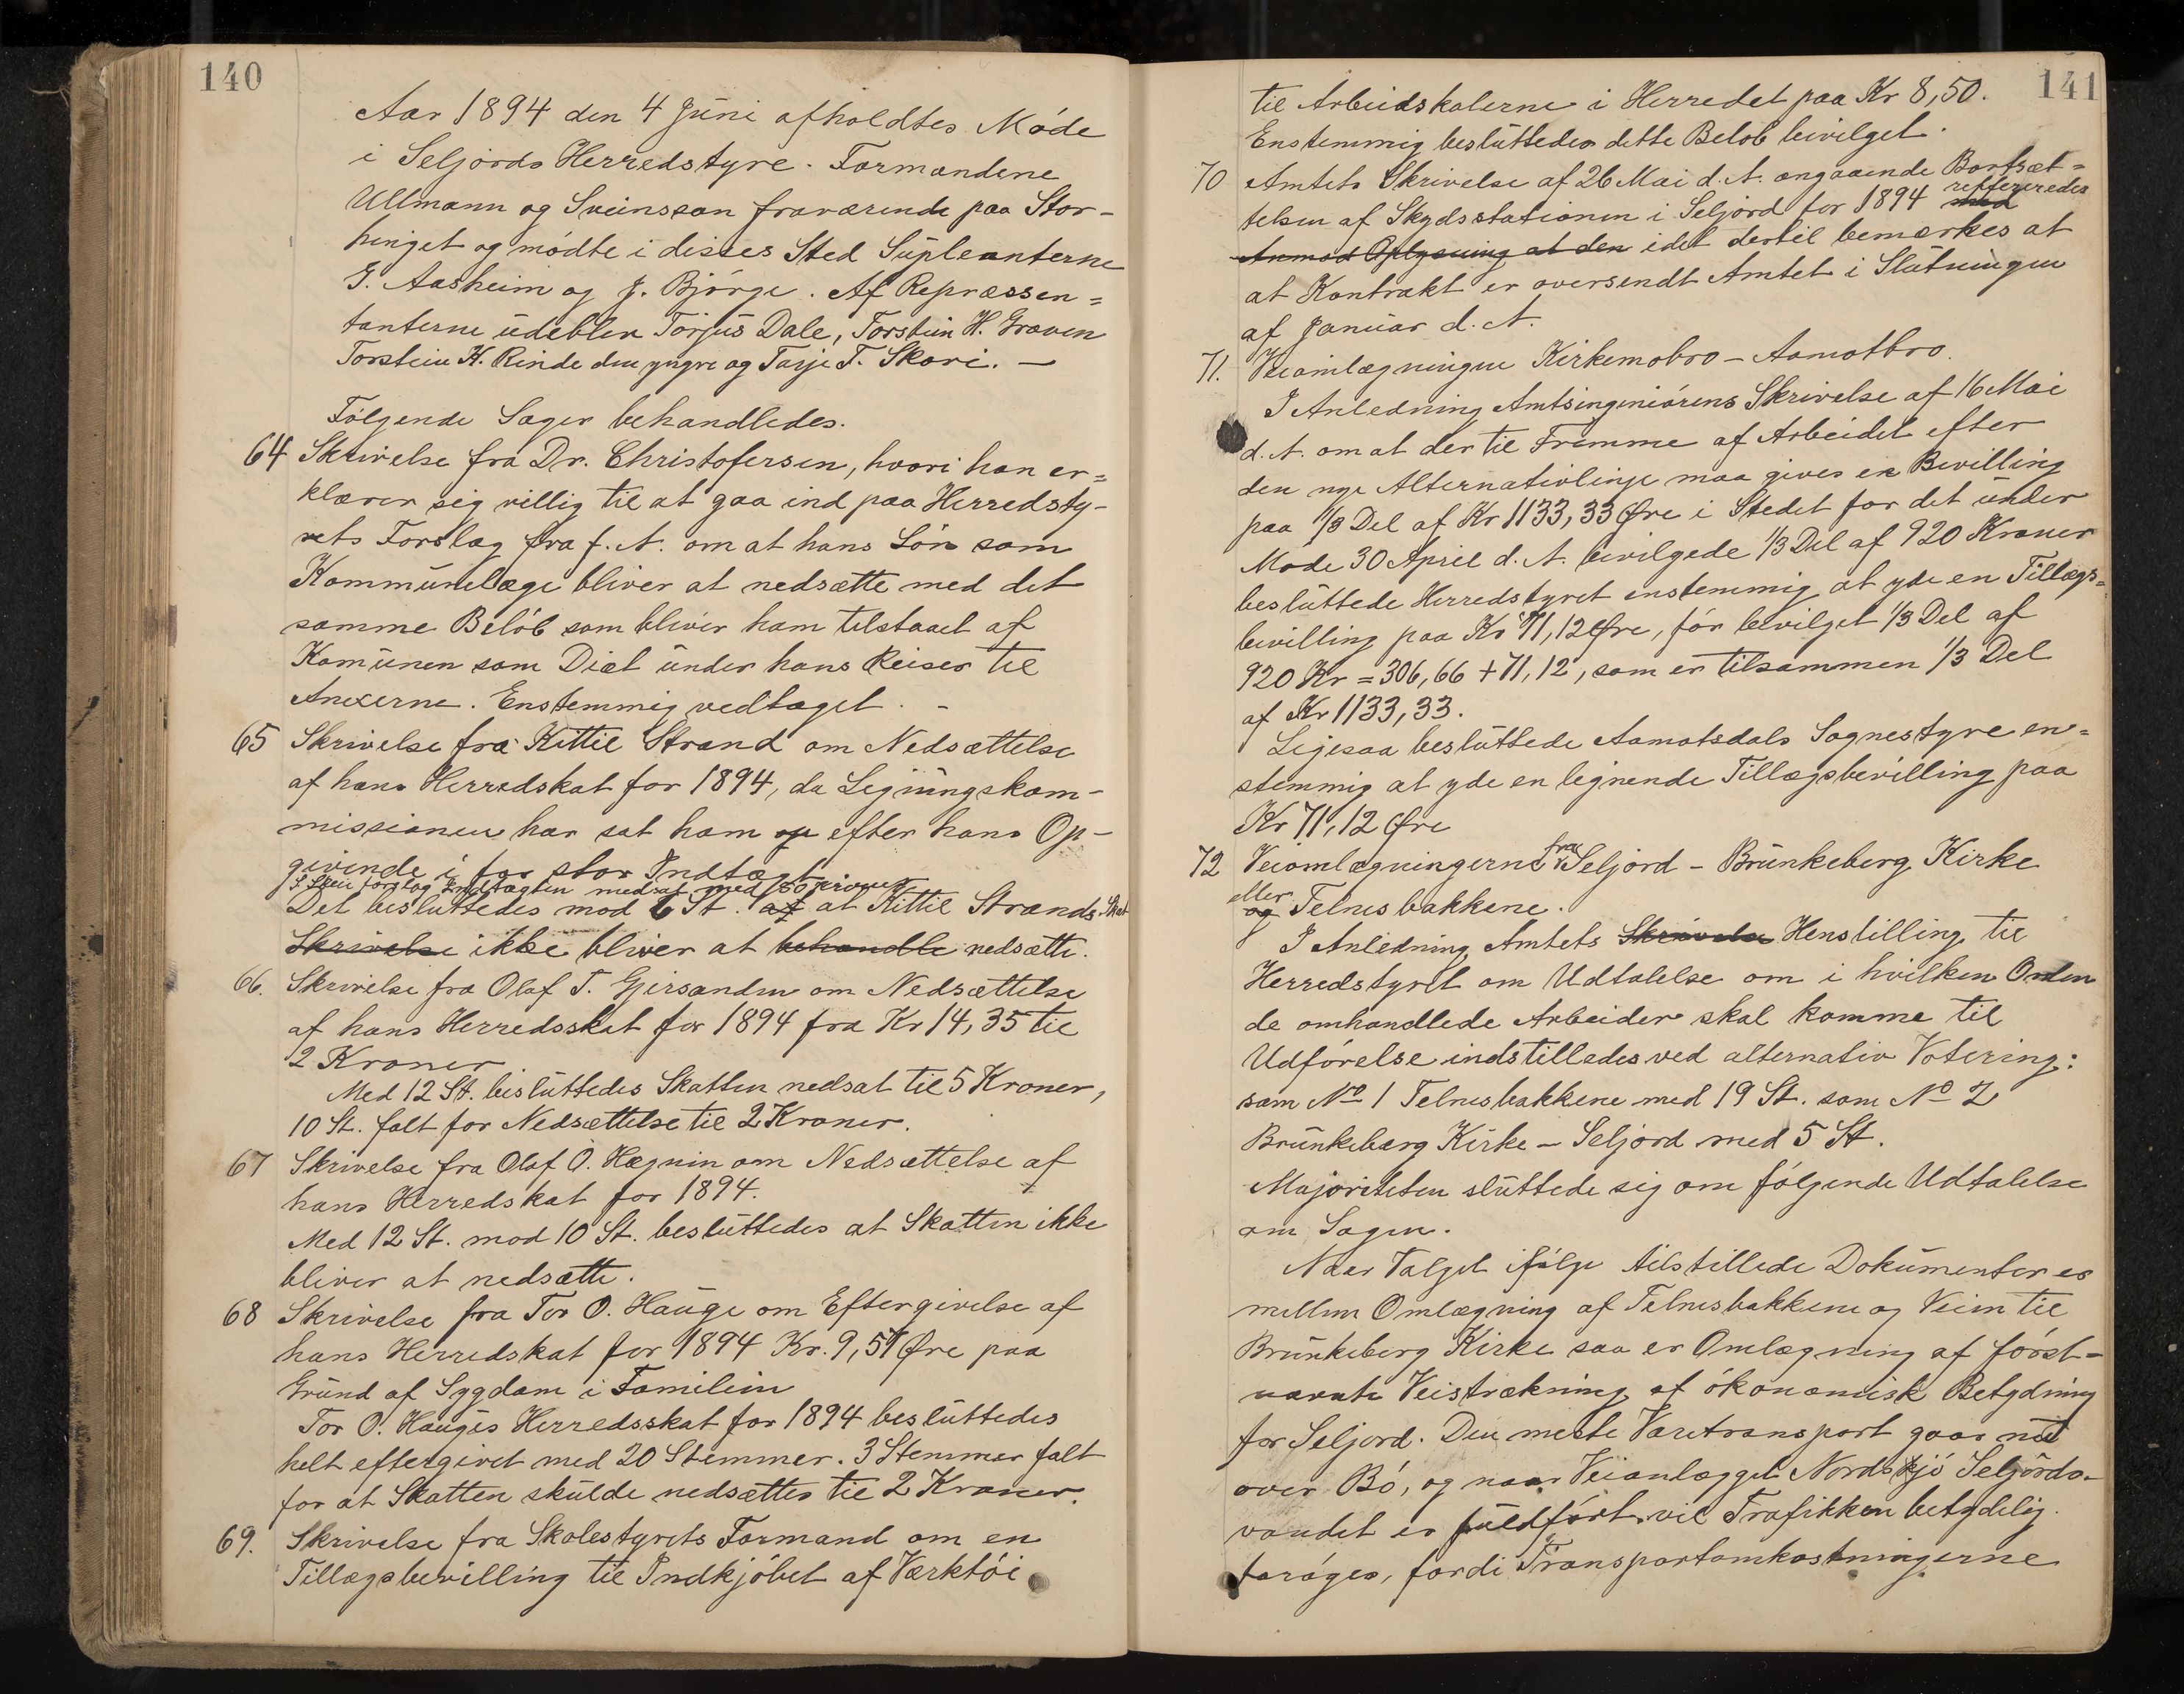 140
Aar 1894 den 4 Juni afholdtes Møde
i Seljords Herredstyre. Formændene
Ullmann og Sveinsson fraværende paa Stor-
hinget og mødte i disses Sted Supleanterne
G. Aasheim og J. Bjørge. Af Repræssen=
tanterne udebler Torjus Dale, Torstein H. Graven
Torstein H. Rinde den yngre og Tarje T. Skori. —
Følgende Sager behandledes.
64 Skrivelse fra Dr. Christofersen, hvori han er=
klærer sig villig til at gaa ind paa Herredsty-
rets Forslag fra f. A. om at hans Løn som
Kommunelæge bliver at nedsætte med det
samme Beløb som bliver ham tilstaaet af
Komunen som Diæt under hans Reiser til
Anexerne. Enstemmig vedtaget. -
65 Skrivelse fra Kittil Strand om Nedsættelse
af hans Herredskat for 1894, da Ligningskom-
missionen har sat ham op efter hans Op-
givende i for stor Indtægt
Indtægten nedsat med
Det besluttedes mod 6 St. af at Kittil Strands Skat
Skrivelse ikke bliver at behandle nedsætte.
66. Skrivelse fra Olaf T. Gjersanden om Nedsættelse
af hans Herredsskat for 1894 fra Kr 14,35 til
2 Kroner
Med 12 St. besluttedes Skatten nedsat til 5 Kroner,
10 St. falt for Nedsættelse til 2 Kroner.
67 Skrivelse fra Olaf O. Hægnin om Nedsættelse af
hans Herredskat for 1894.
Med 12 St. mod 10 St. besluttedes at Skatten ikke
bliver at nedsætte.
68 Skrivelse fra Tor O. Hauge om Eftergivelse af
hans Herredskat for 1894 Kr. 9,57 Øre paa
Grund af Sygdom i Familien
Tor O. Hauges Herredsskat for 1894 besluttedes
helt eftergivet med 20 Stemmer. 3 Stemmer falt
for at Skatten skulde nedsættes til 2 Kroner.
69. Skrivelse fra Skolestyrets Formand om en
Tillægsbevilling til Indkjøbet af Værktøi
141
til Arbeidskolerne i Herredet paa Kr 8,50.
Enstemmig besluttedes dette Beløb bevilget.
70 Amtets Skrivelse af 26 Mai d. A. angaaende Bortsæt=
telsen af Skydsstationen i Seljord for 1894 med reffereredes
Anmod Oplysning at den idet dertil bemærkes at
at Kontrakt er oversendt Amtet i Slutningen
af Januar d. A.
71. Veiomlægningen Kirkemobro - Aamotbro.
I Anledning Amtsingeniørens Skrivelse af 16 Mai
d. A. om at der til Fremme af Arbeidet efter
den nye Alternativlinje maa gives en Bevilling
paa 1/3 Del af Kr 1133,33 Øre i Stedet for det under
Møde 30 April d. A. bevilgede 1/3 Del af 920 Kroner
besluttede Herredstyret enstemmig at yde en Tillægs=
bevilling paa Kr 71,12 Øre, før bevilget 1/3 Del af
920 Kr = 306,66 + 71,12, som er tilsammen 1/3 Del
af Kr 1133,33.
Ligesaa besluttede Aamotsdals Sognestyre en=
stemmig at yde en lignende Tillægsbevilling paa
Kr 71,12 Øre
72 Veiomlægningerne fra Seljord - Brunkeberg Kirke
eller
og Telnesbakkene.
I Anledning Amtets Skrivelse Henstilling til
Herredstyret om Udtalelse om i hvilken Orden
de omhandlede Arbeider skal komme til
Udførelse indstilledes ved alternativ Votering:
som No 1 Telnesbakkene med 19 St. som No 2
Brunkeberg Kirke - Seljord med 5 St.
Majoriteten sluttede sig om følgende Udtalelse
om Sagen.
Naar Valget ifølge tilstillede Dokumenter er
mellem Omlægning af Telnesbakkene og Veien til
Brunkeberg Kirke saa er Omlægning af først-
nævnte Veistrækning af økonomisk Betydning
for Seljord. Den meste Varetransport gaar nu
over Bø, og naar Veianlægget Nordsjø Seljords-
vandet er fuldført vil Trafikken betydelig
forøges, fordi Transportomkostningerne